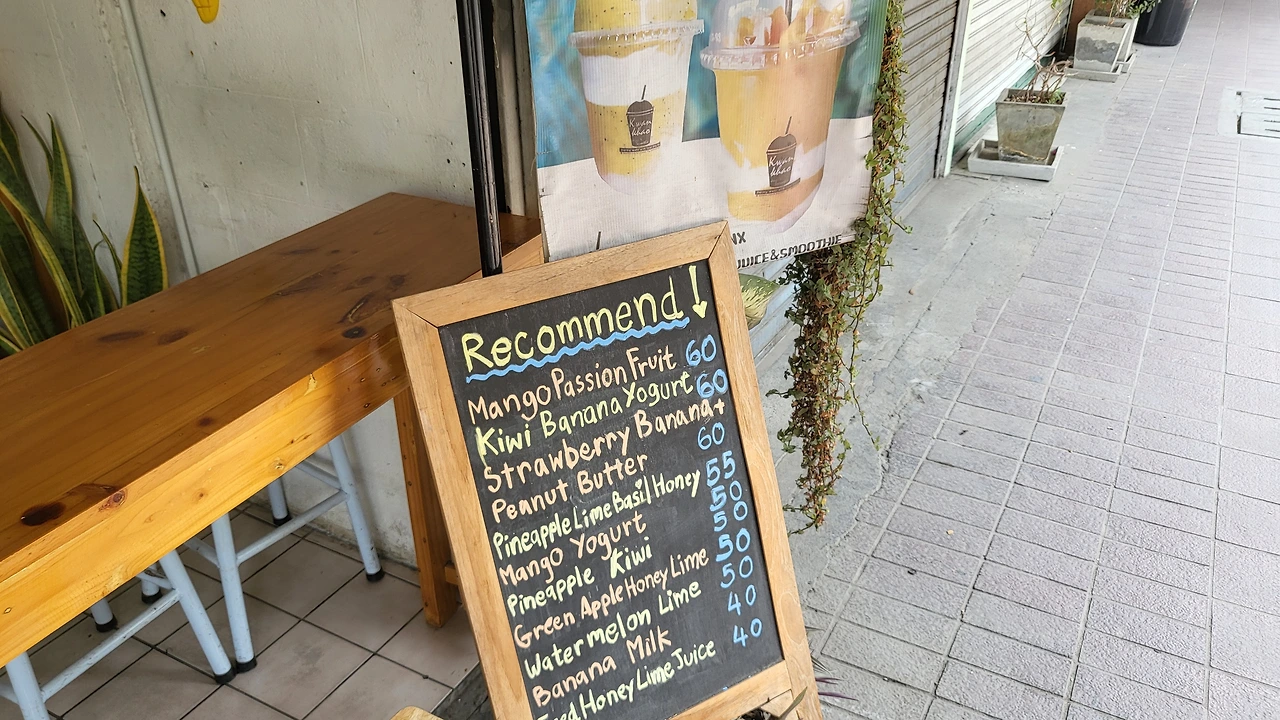 Kwan
khao
Kwan
khao
JUICE&SMOOTHIE
Recommend
Mango Passion Fruit 60
Kiwi Banana Yogurt 60
Strawberry Banana+
Peanut Butter 60
Pineapple Lime Basil Honey 55
Mango Yogurt 50
Pineapple Kiwi 50
Green Apple Honey Lime 50
Watermelon Lime 50
Banana Milk 40
Honey Lime Juice 40